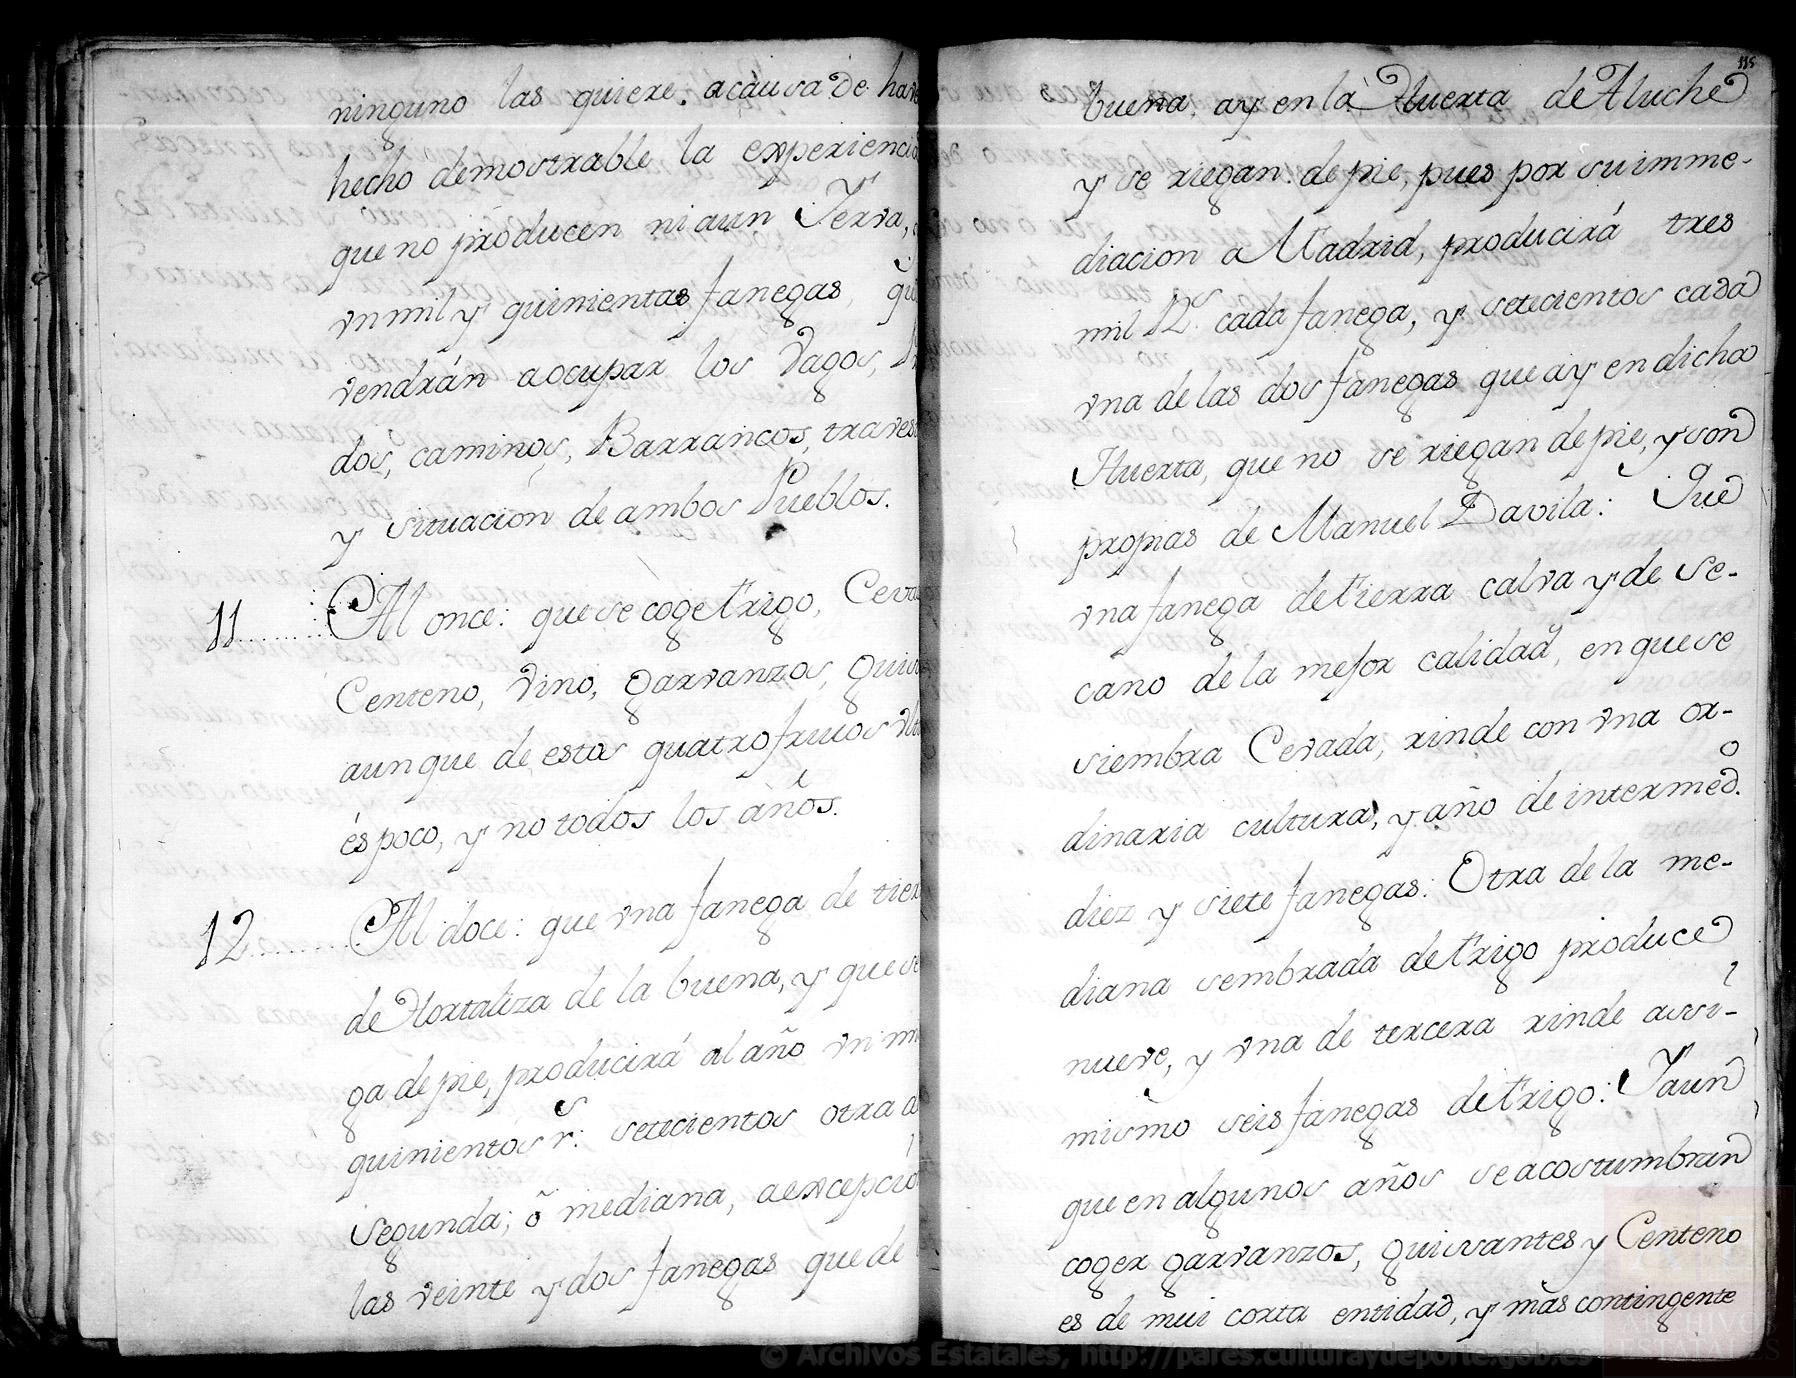 ninguno las quiere. acausa de hav
hecho demostrable la experiencia
que no producen ni aun Yerva,
vn mil y quinientas fanegas, qu
vendrán aocupar los Vagos,
dos, caminos, Barrancos, traves
y situacion de ambos Pueblos.
11 Al once: que se coge trigo, Ceva
Centeno, Vino, garvanzos, guis
aunque de estos quatro frutos Vlt
és poco, y no todos los años.
12 Al doce: que vna fanega de tier
de Hortaliza de la buena, y que se
ga de pie, producirá al año vn m
quinientos r.s setecientos otra d
segunda; ó mediana, aexcepcio
las veinte y dos fanegas que de
115
buena, ay en la Huerta de Aluche
y se riegan de pie, pues por su imme-
diacion a Madrid, producirá tres
mil R.s cada fanega, y setecientos cada
vna de las dos fanegas que ay en dicha
Huerta, que no se riegan de pie, y son
propias de Manuel Davila: Que
vna fanega de tierra calva y de se-
cano de la mejor calidad, en que se
siembra Cevada, rinde con vna or-
dinaria cultura, y año de intermed.o
diez y siete fanegas: Otra de la me-
diana sembrada de trigo produce
nueve, y vna de tercera rinde assi-
mismo seis fanegas de trigo: Yaun
que en algunos años se acostumbran
coger garvanzos, guisantes y Centeno
es de mui corta entidad, y mas contingente
© Archivos Estatales, http://pares.culturaydeporte.gob.es
ARCHIVOS
ESTATALES